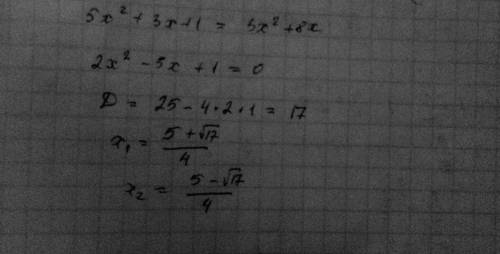 5x² + 3x + 1 = 3x² + 8x
2x² - 5x + 1 = 0
D = 25 - 4 * 2 * 1 = 17
x₁ = (5 + √17)/4
x₂ = (5 - √17)/4